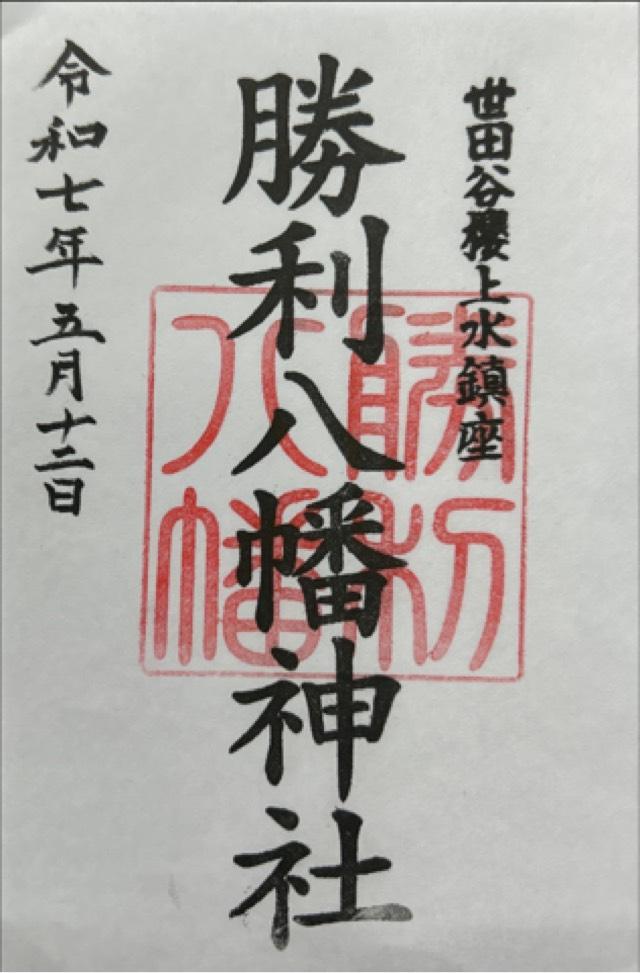 世田谷櫻上水鎮座
勝利八幡神社
勝利
八幡
令和七年五月十二日